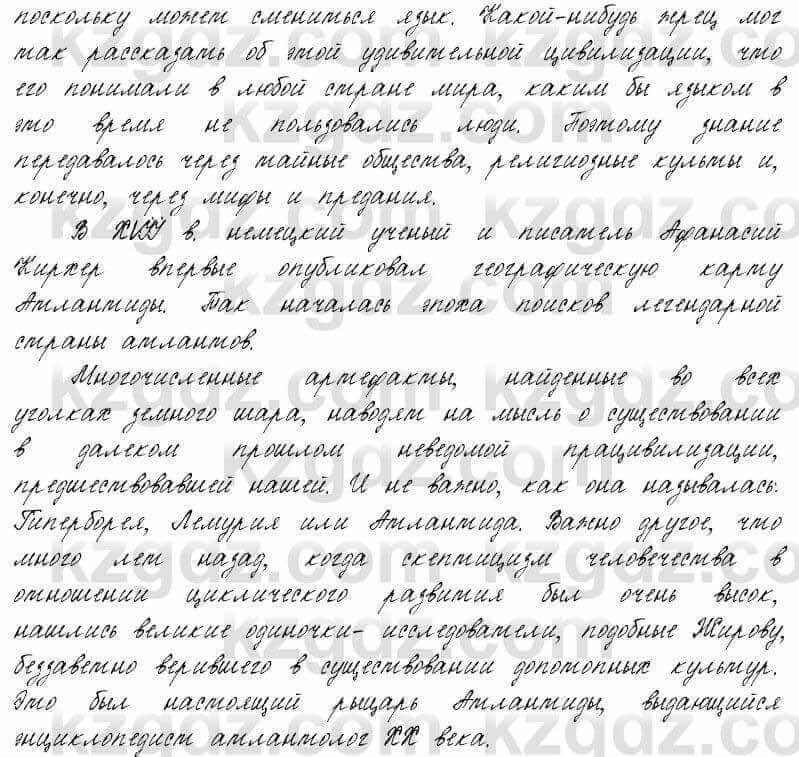 поскольку может смениться язык. Какой-нибудь жрец мог
так рассказать об этой удивительной цивилизации, что
его понимали в любой стране мира, каким бы языком в
это время не пользовались люди. Поэтому знание
передавалось через тайные общества, религиозные культы и,
конечно, через мифы и предания.
В XVII в. немецкий ученый и писатель Афанасий
Кирхер впервые опубликовал географическую карту
Атлантиды. Так началась эпоха поисков легендарной
страны атлантов.
Многочисленные артефакты, найденные во всех
уголках земного шара, наводят на мысль о существовании
в далеком прошлом неведомой працивилизации,
предшествовавшей нашей. И не важно, как она называлась:
Гиперборея, Лемурия или Атлантида. Важно другое, что
много лет назад, когда скептицизм человечества в
отношении циклического развития был очень высок,
нашлись великие одиночки- исследователи, подобные Жирову,
беззаветно верившего в существовании допотопных культур.
Это был настоящий рыцарь Атлантиды, выдающийся
энциклопедист атлантолог XX века.
kzgdz.com
kzgdz.com
kzgdz.com
kzgdz.com
kzgdz.com
kzgdz.com
kzgdz.com
kzgdz.com